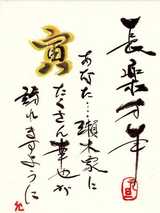 長楽万年
元旦
寅
あなた…瀬木家に
たくさん幸せが
訪れますように